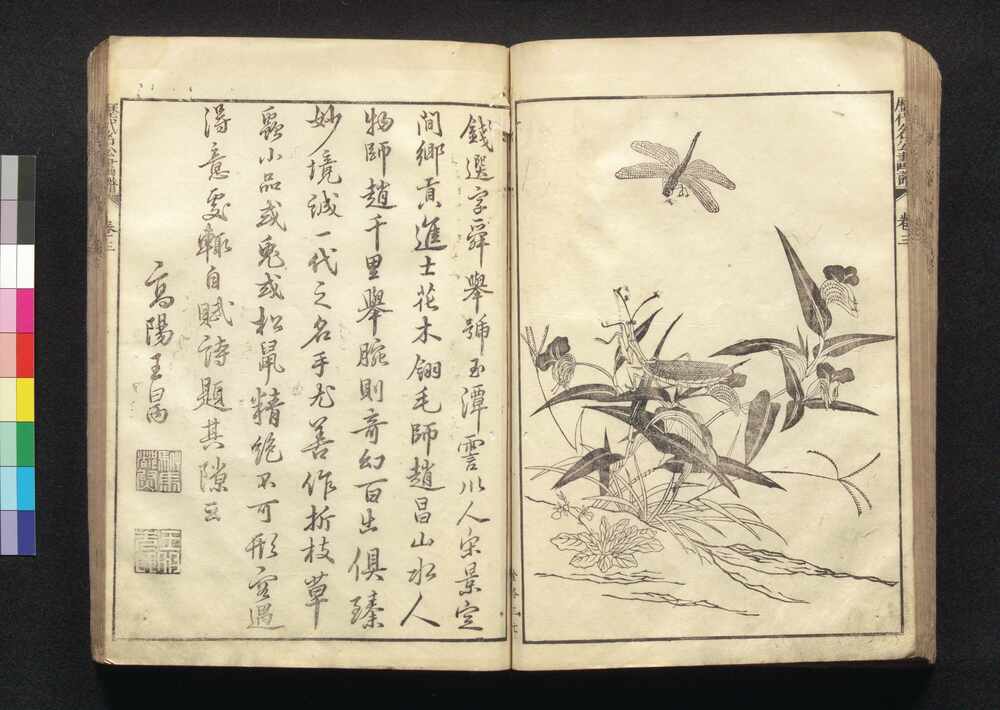 歷代名公畫譜 卷三
錢選字舜舉號玉潭霅川人宋景定
間鄉貢進士花木翎毛師趙昌山水人
物師趙千里舉腕則奇幻百出俱臻
妙境誠一代之名手尤善作折枝草
蟲小品或兔或松鼠精絕不可形容遇
得意處輒自賦詩題其隙云
高陽王昺
歷代名公畫譜 卷三